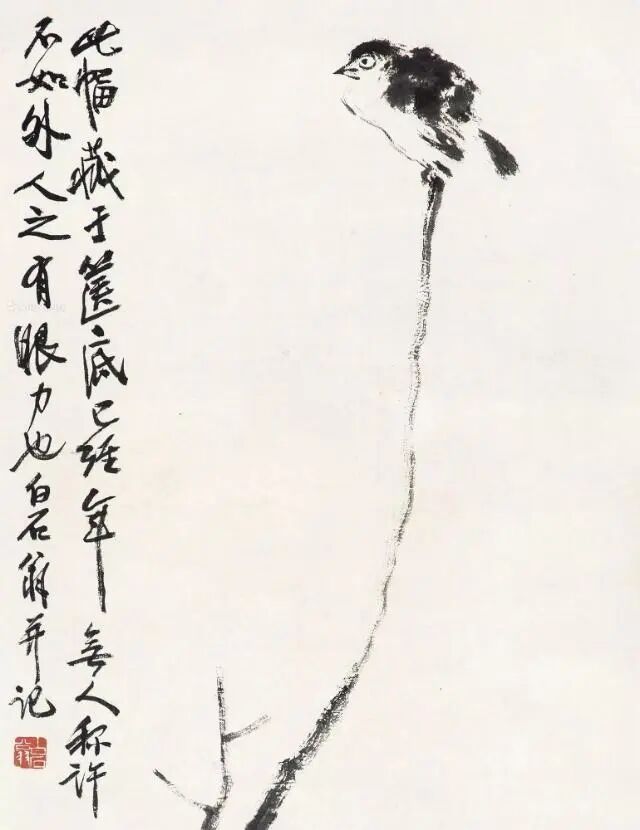 此幅藏于箧底已经年無人称许
不如外人之有眼力也白石翁并记